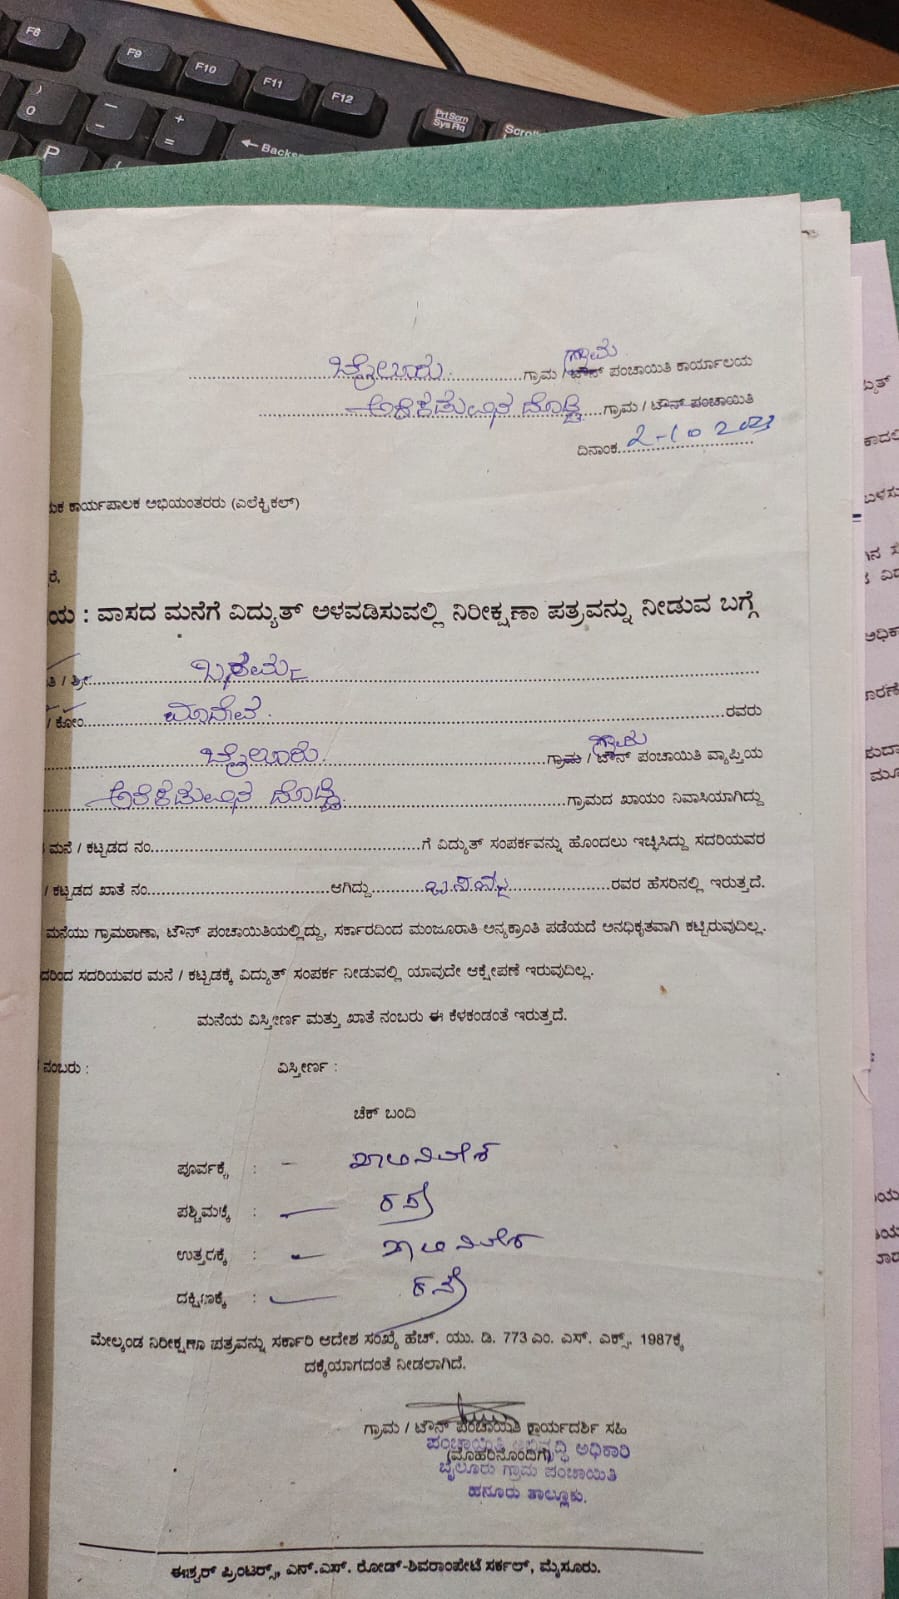 F8
F9
F10
F11
F12
PrtScrn
SysRq
Scroll
)
0
–
-
+
=
← Backs
P
ಬೈಲೂರು ಗ್ರಾಮ / ಟೌನ್ ಗ್ರಾಮ ಪಂಚಾಯಿತಿ ಕಾರ್ಯಾಲಯ
ದೊಡ್ಡಿ ಗ್ರಾಮ / ಟೌನ್ ಪಂಚಾಯಿತಿ
ದಿನಾಂಕ 2-10 2023
ಕಾರ್ಯಪಾಲಕ ಅಭಿಯಂತರರು (ಎಲೆಕ್ಟ್ರಿಕಲ್)
ರೆ,
ಯ : ವಾಸದ ಮನೆಗೆ ವಿದ್ಯುತ್ ಅಳವಡಿಸುವಲ್ಲಿ ನಿರೀಕ್ಷಣಾ ಪತ್ರವನ್ನು ನೀಡುವ ಬಗ್ಗೆ
ತಿ / ಶ್ರೀ
/ ಕೋಂ ಮಾದೇವ ರವರು
ಬೈಲೂರು ಗ್ರಾಮ / ಟೌನ್ ಗ್ರಾಮ ಪಂಚಾಯಿತಿ ವ್ಯಾಪ್ತಿಯ
ದೊಡ್ಡಿ ಗ್ರಾಮದ ಖಾಯಂ ನಿವಾಸಿಯಾಗಿದ್ದು
ಮನೆ / ಕಟ್ಟಡದ ನಂ. ಗೆ ವಿದ್ಯುತ್ ಸಂಪರ್ಕವನ್ನು ಹೊಂದಲು ಇಚ್ಛಿಸಿದ್ದು ಸದರಿಯವರ
/ ಕಟ್ಟಡದ ಖಾತೆ ನಂ. ಆಗಿದ್ದು ರವರ ಹೆಸರಿನಲ್ಲಿ ಇರುತ್ತದೆ.
ಮನೆಯು ಗ್ರಾಮಠಾಣಾ, ಟೌನ್ ಪಂಚಾಯಿತಿಯಲ್ಲಿದ್ದು, ಸರ್ಕಾರದಿಂದ ಮಂಜೂರಾತಿ ಅನ್ಯಕ್ರಾಂತಿ ಪಡೆಯದೆ ಅನಧಿಕೃತವಾಗಿ ಕಟ್ಟಿರುವುದಿಲ್ಲ.
ದರಿಂದ ಸದರಿಯವರ ಮನೆ / ಕಟ್ಟಡಕ್ಕೆ ವಿದ್ಯುತ್ ಸಂಪರ್ಕ ನೀಡುವಲ್ಲಿ ಯಾವುದೇ ಆಕ್ಷೇಪಣೆ ಇರುವುದಿಲ್ಲ.
ಮನೆಯ ವಿಸ್ತೀರ್ಣ ಮತ್ತು ಖಾತೆ ನಂಬರು ಈ ಕೆಳಕಂಡಂತೆ ಇರುತ್ತದೆ.
ನಂಬರು : ವಿಸ್ತೀರ್ಣ :
ಚೆಕ್ ಬಂದಿ
ಪೂರ್ವಕ್ಕೆ : - ಖಾಲಿ ನಿವೇಶ
ಪಶ್ಚಿಮಕ್ಕೆ : - ರಸ್ತೆ
ಉತ್ತರಕ್ಕೆ : - ಖಾಲಿ ನಿವೇಶ
ದಕ್ಷಿಣಕ್ಕೆ : - ರಸ್ತೆ
ಮೇಲ್ಕಂಡ ನಿರೀಕ್ಷಣಾ ಪತ್ರವನ್ನು ಸರ್ಕಾರಿ ಆದೇಶ ಸಂಖ್ಯೆ ಹೆಚ್. ಯು. ಡಿ. 773 ಎಂ. ಎಸ್. ಎಕ್ಸ್. 1987ಕ್ಕೆ
ದಕ್ಕೆಯಾಗದಂತೆ ನೀಡಲಾಗಿದೆ.
ಗ್ರಾಮ / ಟೌನ್ ಪಂಚಾಯಿತಿ ಕಾರ್ಯದರ್ಶಿ ಸಹಿ
(ಮೊಹರಿನೊಂದಿಗೆ)
ಪಂಚಾಯಿತಿ ಅಭಿವೃದ್ಧಿ ಅಧಿಕಾರಿ
ಬೈಲೂರು ಗ್ರಾಮ ಪಂಚಾಯಿತಿ
ಹನೂರು ತಾಲ್ಲೂಕು.
ಈಶ್ವರ್ ಪ್ರಿಂಟರ್ಸ್, ಎನ್.ಎಸ್. ರೋಡ್-ಶಿವರಾಂಪೇಟೆ ಸರ್ಕಲ್, ಮೈಸೂರು.